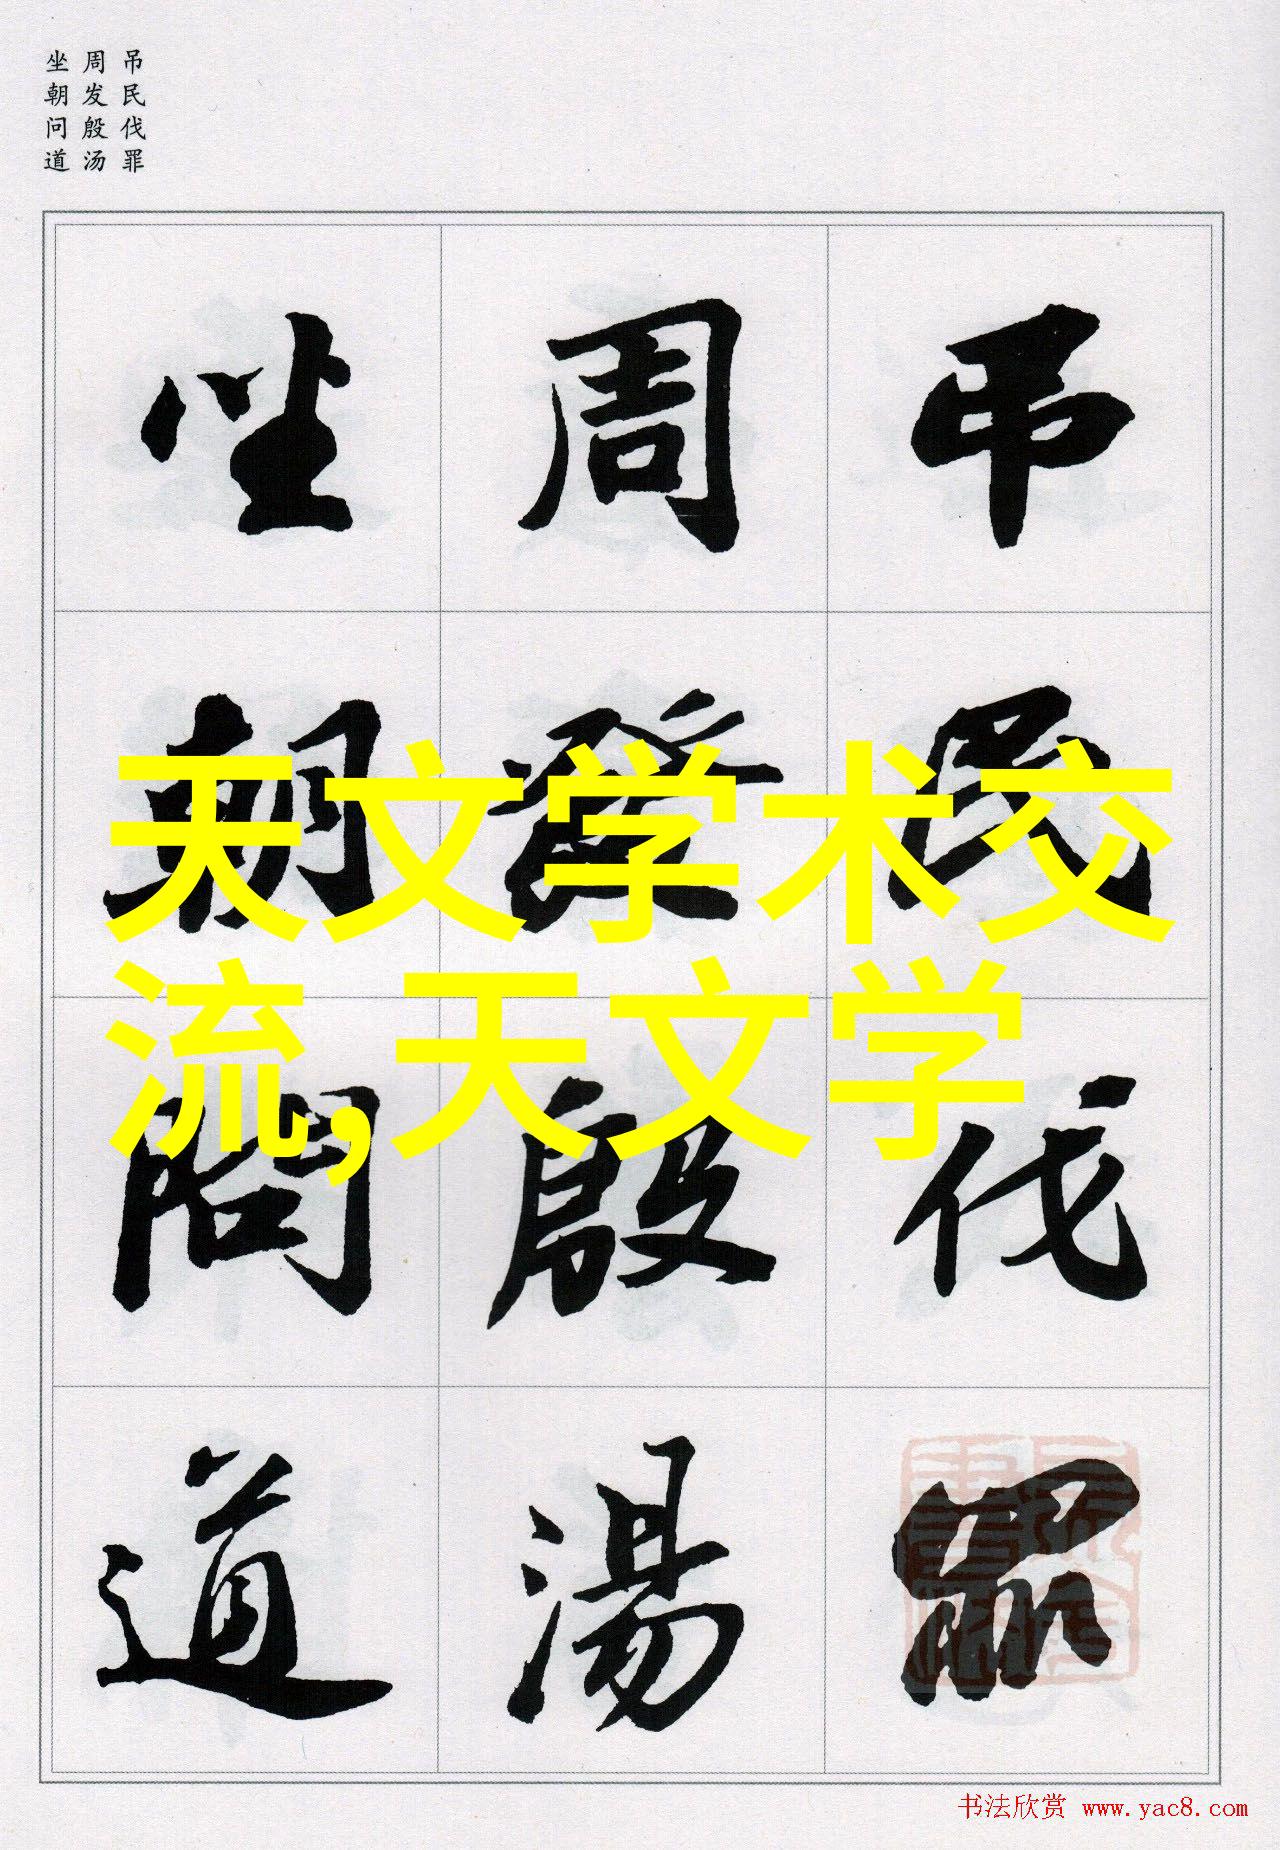 吊民伐罪
周发殷汤
坐朝问道
吊民伐罪
周發殷湯
坐朝問道
天文学术交
流,天文学
书法欣赏 www.yac8.com